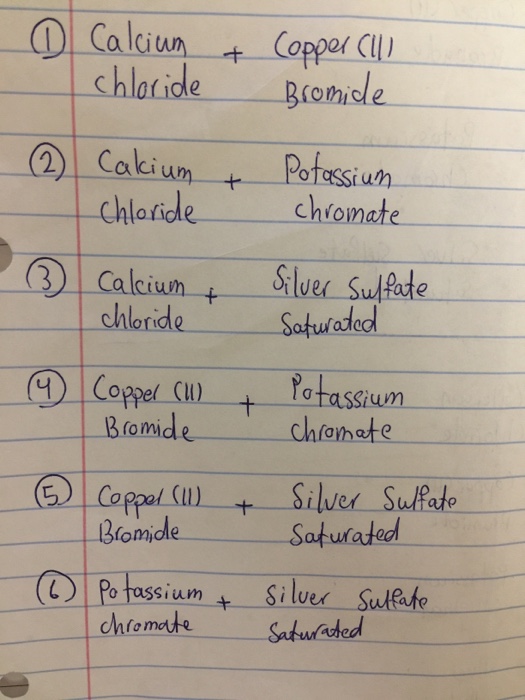 ① Calcium + Copper (II)
chloride Bromide
② Calcium + Potassium
Chloride chromate
③ Calcium + Silver Sulfate
chloride Saturated
④ Copper (II) + Potassium
Bromide chromate
⑤ Copper (II) + Silver Sulfate
Bromide Saturated
⑥ Potassium + Silver Sulfate
chromate Saturated